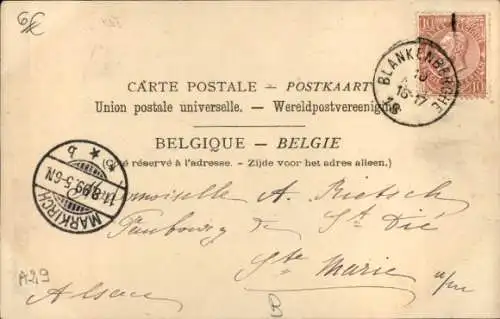 6
10 10
BLANKENBERGHE
10
16-17
98
CARTE POSTALE — POSTKAART
Union postale universelle. — Wereldpostvereeniging
BELGIQUE — BELGIE
(Côté réservé à l'adresse. — Zijde voor het adres alleen.)
MARKIRCH
11.8.99.5-6N.
* b
Mademoiselle A. Rietsch
Faubourg de St Dié
Ste Marie a/m
Alsace
A29